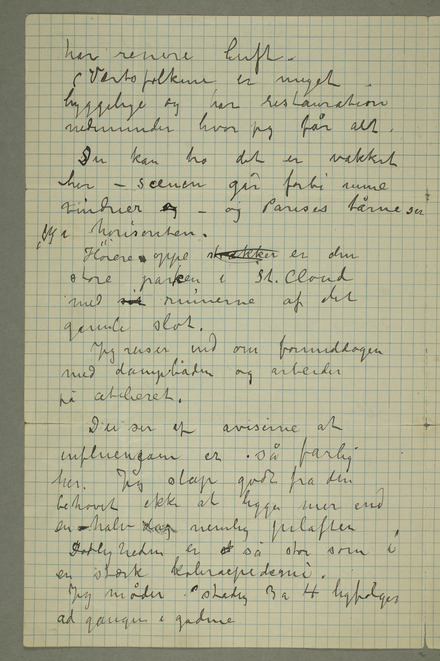 har renere luft –
Værtsfolkene er meget
hyggelige og har restauration
nedenunder hvor jeg får alt.
Du kan tro det er vakkert
her – Seinen går forbi mine
vinduer og – og Parises tårne ser
jeg i horisonten.
Høiere oppe er den
store parken i St. Cloud
med ruinerne af det
gamle slot.
Jeg reiser ind om formiddagen
med dampbåden og arbeider
på atelieret.
Du ser af aviserne at
influenzaen er så farlig
her. Jeg slap godt fra den
behøvet ikke at ligge mer end
en halv dag nemlig julaften
Dødligheden er så stor som i
en stærk koleraepidemi.
Jeg møder stadig 3 a 4 ligfølger
ad gangen i gaderne